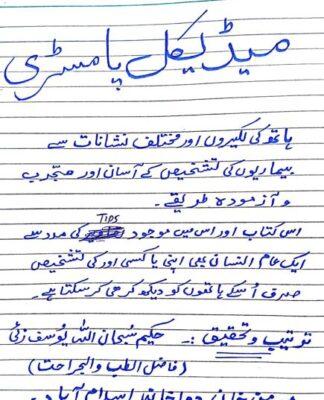 میڈیکل پامسٹری
ہاتھ کی لکیروں اور مختلف نشانات سے
بیماریوں کی تشخیص کے آسان اور مجرب
و آزمودہ طریقے۔
اس کتاب اور اس میں موجود Tips کی مدد سے
ایک عام انسان بھی اپنی یا کسی اور کی تشخیص
صرف اُسکے ہاتھوں کو دیکھ کر ہی کر سکتا ہے۔
ترتیب و تحقیق :۔ حکیم سُبحان اللہ یُوسف زئی
(فاضل الطب والجراحت)
دواخانہ اسلام آباد۔